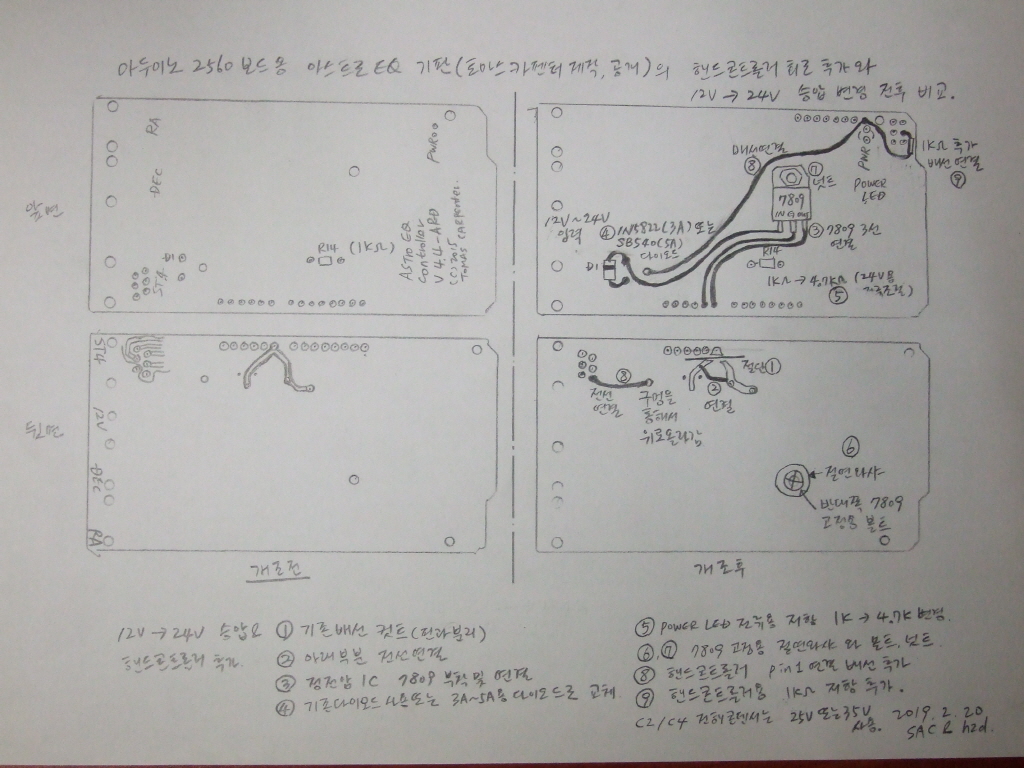 아두이노 2560 보드용 아스트로EQ 기판(토마스카펜터 제작, 공개)의 핸드콘트롤러 회로 추가와
12V → 24V 승압 변경 전후 비교.
앞면
RA
DEC
ST4
PWR
R14 (1KΩ)
ASTRO EQ
Controller
V4.4-ARD
(C) 2015
TOMAS CARPENTER
뒷면
ST4
12V
DEC
RA
개조전
배선연결
⑧
⑦
넛트
7809
IN G OUT
PWR
POWER
LED
1KΩ 추가
배선연결
⑨
12V~24V
입력
④ 1N5822(3A) 또는
SB540(5A)
다이오드
D1
③ 7809 3선
연결
R14
1KΩ → 4.7KΩ (24V용
⑤
절단①
⑧
전선
연결
구멍을
통해서
위로올라감
②
연결
⑥
절연와샤
반대쪽 7809
고정용 볼트
개조후
12V → 24V 승압요
핸드콘트롤러 추가.
① 기존배선 컷트(전과분리)
② 아래부분 전선연결
③ 정전압 IC 7809 부착및 연결
④ 기존다이오드 사용또는 3A~5A용 다이오드로 교체.
⑤ POWER LED 전류용 저항 1K → 4.7K 변경.
⑥,⑦ 7809 고정용 절연와샤 와 볼트, 넛트.
⑧ 핸드콘트롤러 pin1 연결 배선 추가
⑨ 핸드콘트롤러용 1KΩ 저항 추가.
C2/C4 전해콘덴서는 25V 또는 35V
사용. 2019. 2. 20